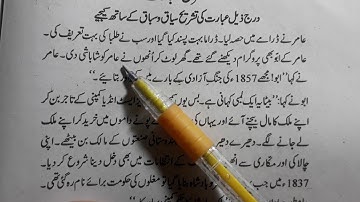 درج ذیل عبارت کی تشریح سیاق و سباق کے ساتھ کیجیے
عامر نے ڈرامے میں حصہ لیا۔ ڈراما بہت پسند کیا گیا اور سب نے طلبا کی بہت تعریف کی۔
عامر کے ابو بھی پروگرام دیکھنے گئے تھے۔ گھر لوٹ کر انھوں نے عامر کو شاباشی دی۔ عامر
نے کہا "ابو! مجھے 1857 کی جنگ آزادی کے بارے میں بتایئے۔"
ابو نے کہا: "بیٹا یہ ایک لمبی کہانی ہے۔ بس یوں ایسٹ انڈیا کمپنی کے تاجر بن کر
اپنے ملک کا مال بیچنے آئے اور یہاں کے داموں میں خرید کر اپنے ملک
لے جانے لگے۔ دھیرے دھیرے صنعتوں کے مالک بن بیٹھے۔ اپنی
چالاکی اور مکاری سے انھوں کے انتظامات میں بھی دخل دینا شروع کر دیا۔
1837 میں جب بادشاہ بنایا گیا تو مغلوں کی حکومت برائے نام رہ گئی تھی۔